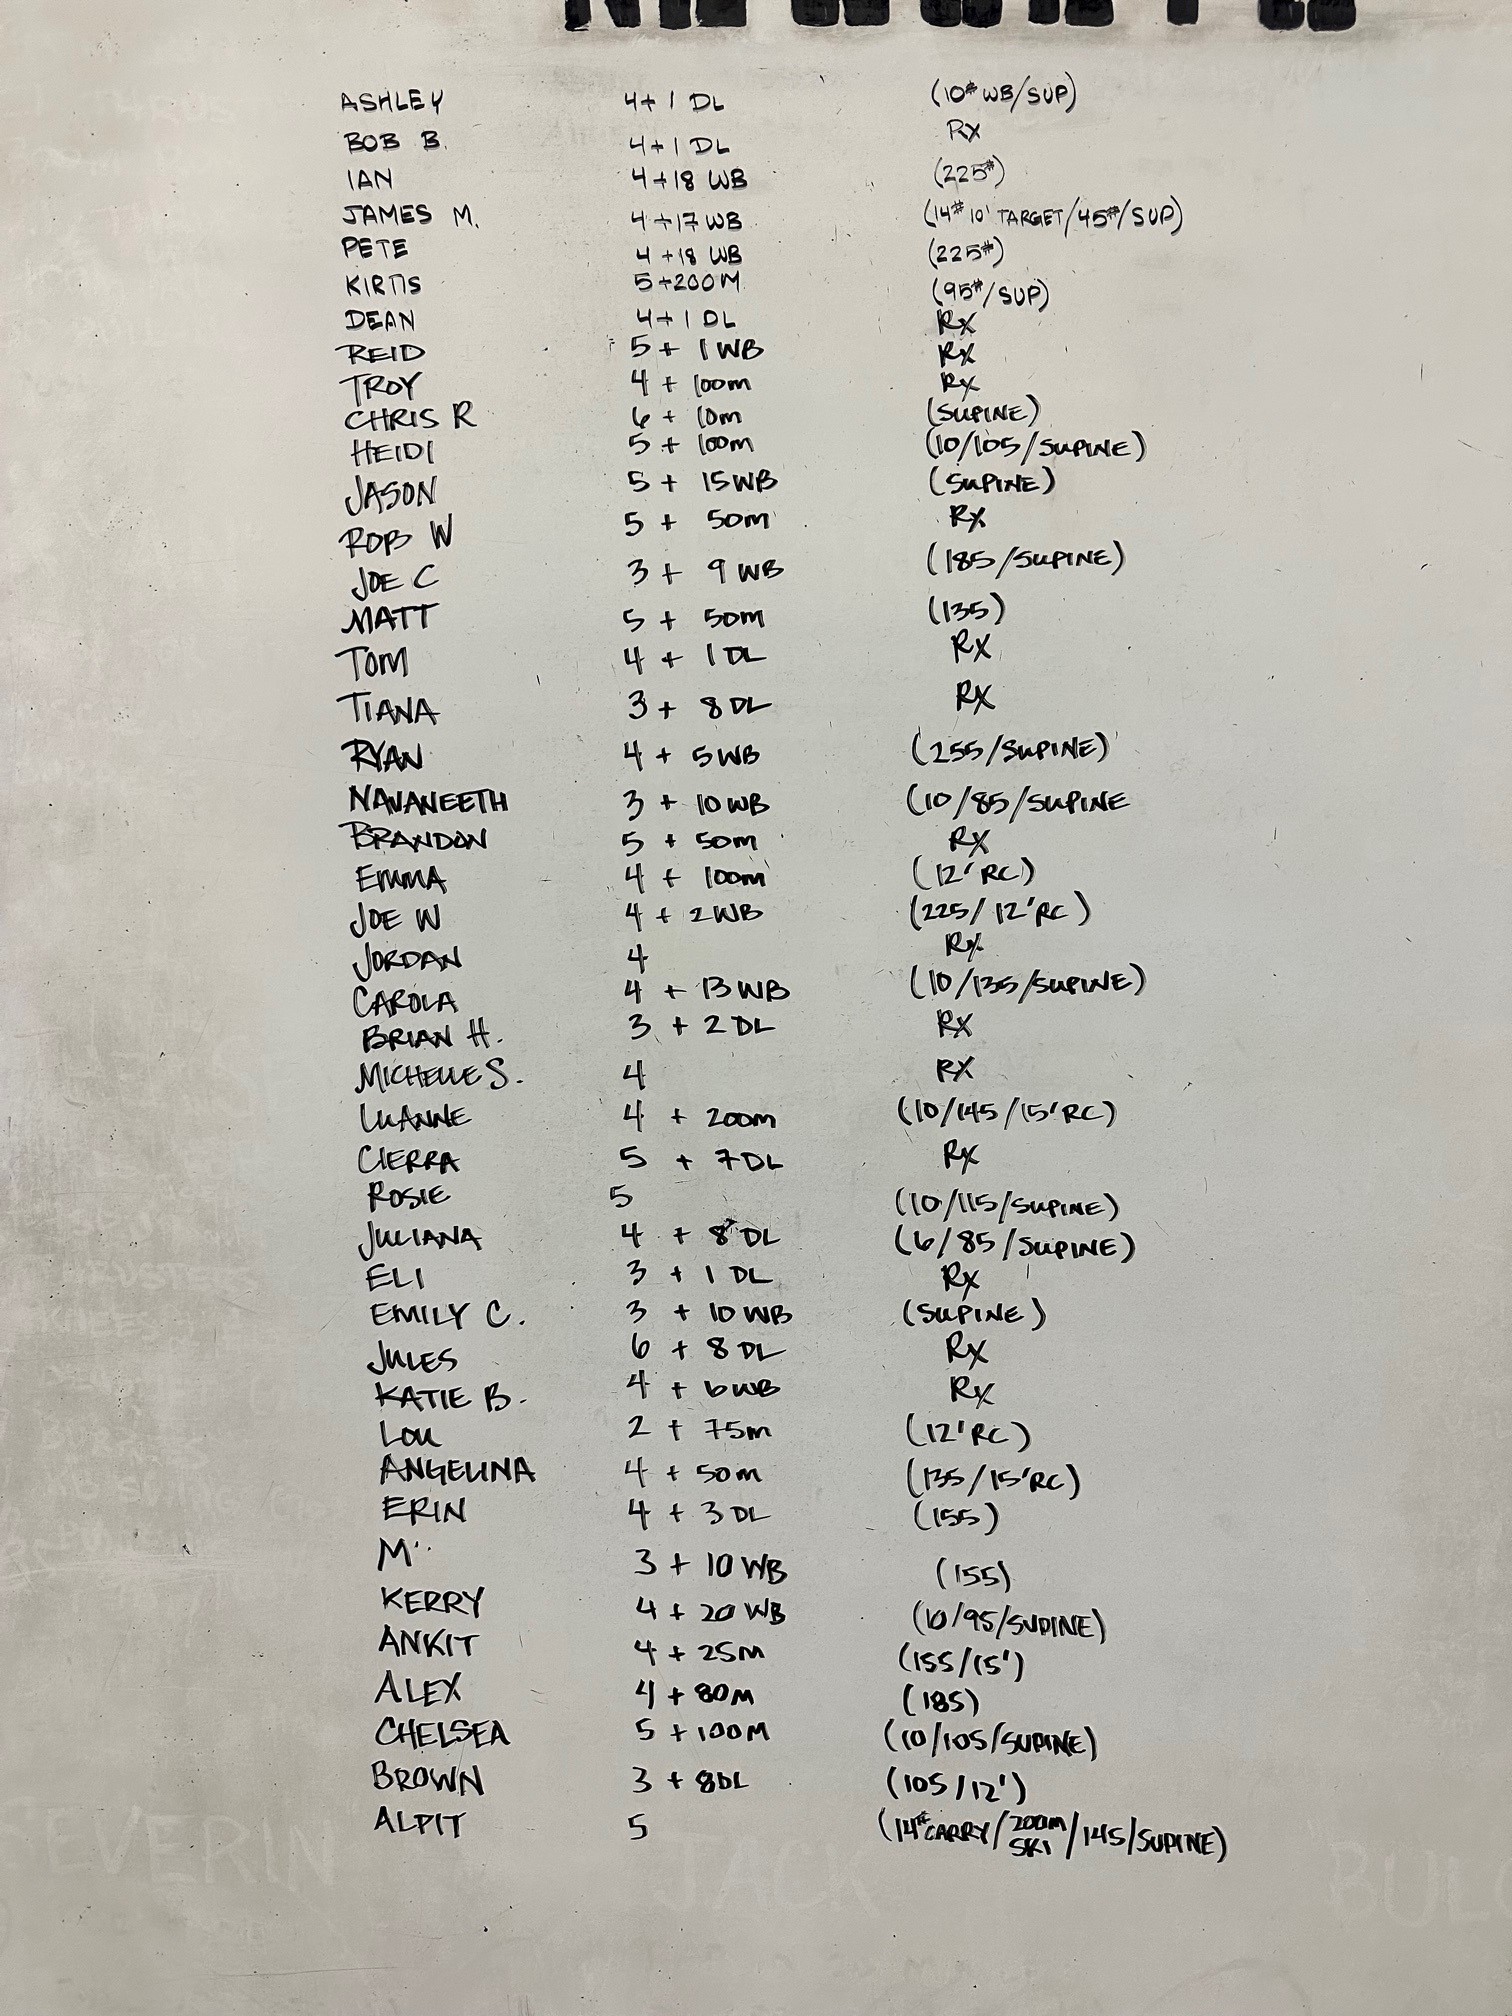 ASHLEY 4+1 DL (10# WB/SUP)
BOB B. 4+1 DL Rx
IAN 4+18 WB (225#)
JAMES M. 4+17 WB (14# 10' TARGET/45#/SUP)
PETE 4+18 WB (225#)
KIRTIS 5+200M (95#/SUP)
DEAN 4+1 DL Rx
REID 5 + 1 WB Rx
TROY 4 + 100m Rx
CHRIS R 6 + 10m (SUPINE)
HEIDI 5 + 100m (10/105/SUPINE)
JASON 5 + 15 WB (SUPINE)
ROB W 5 + 50m Rx
JOE C 3 + 9 WB (185/SUPINE)
MATT 5 + 50m (135)
TOM 4 + 1 DL Rx
TIANA 3 + 8 DL Rx
RYAN 4 + 5 WB (255/SUPINE)
NAVANEETH 3 + 10 WB (10/85/SUPINE
BRANDON 5 + 50m Rx
EMMA 4 + 100m (12' RC)
JOE W 4 + 2 WB (225/12' RC)
JORDAN 4 Rx
CAROLA 4 + 13 WB (10/135/SUPINE)
BRIAN H. 3 + 2 DL Rx
MICHELLE S. 4 Rx
LUANNE 4 + 200m (10/145/15' RC)
CIERRA 5 + 7 DL Rx
ROSIE 5 (10/115/SUPINE)
JULIANA 4 + 8 DL (6/85/SUPINE)
ELI 3 + 1 DL Rx
EMILY C. 3 + 10 WB (SUPINE)
JULES 6 + 8 DL Rx
KATIE B. 4 + 6 WB Rx
LOU 2 + 75m (12' RC)
ANGELINA 4 + 50m (135/15' RC)
ERIN 4 + 3 DL (155)
M 3 + 10 WB (155)
KERRY 4 + 20 WB (10/95/SUPINE)
ANKIT 4 + 25M (155/15')
ALEX 4 + 80M (185)
CHELSEA 5 + 100M (10/105/SUPINE)
BROWN 3 + 8DL (105/12')
ALPIT 5 (14# CARRY/200m SKI/145/SUPINE)
EVERIN JACK